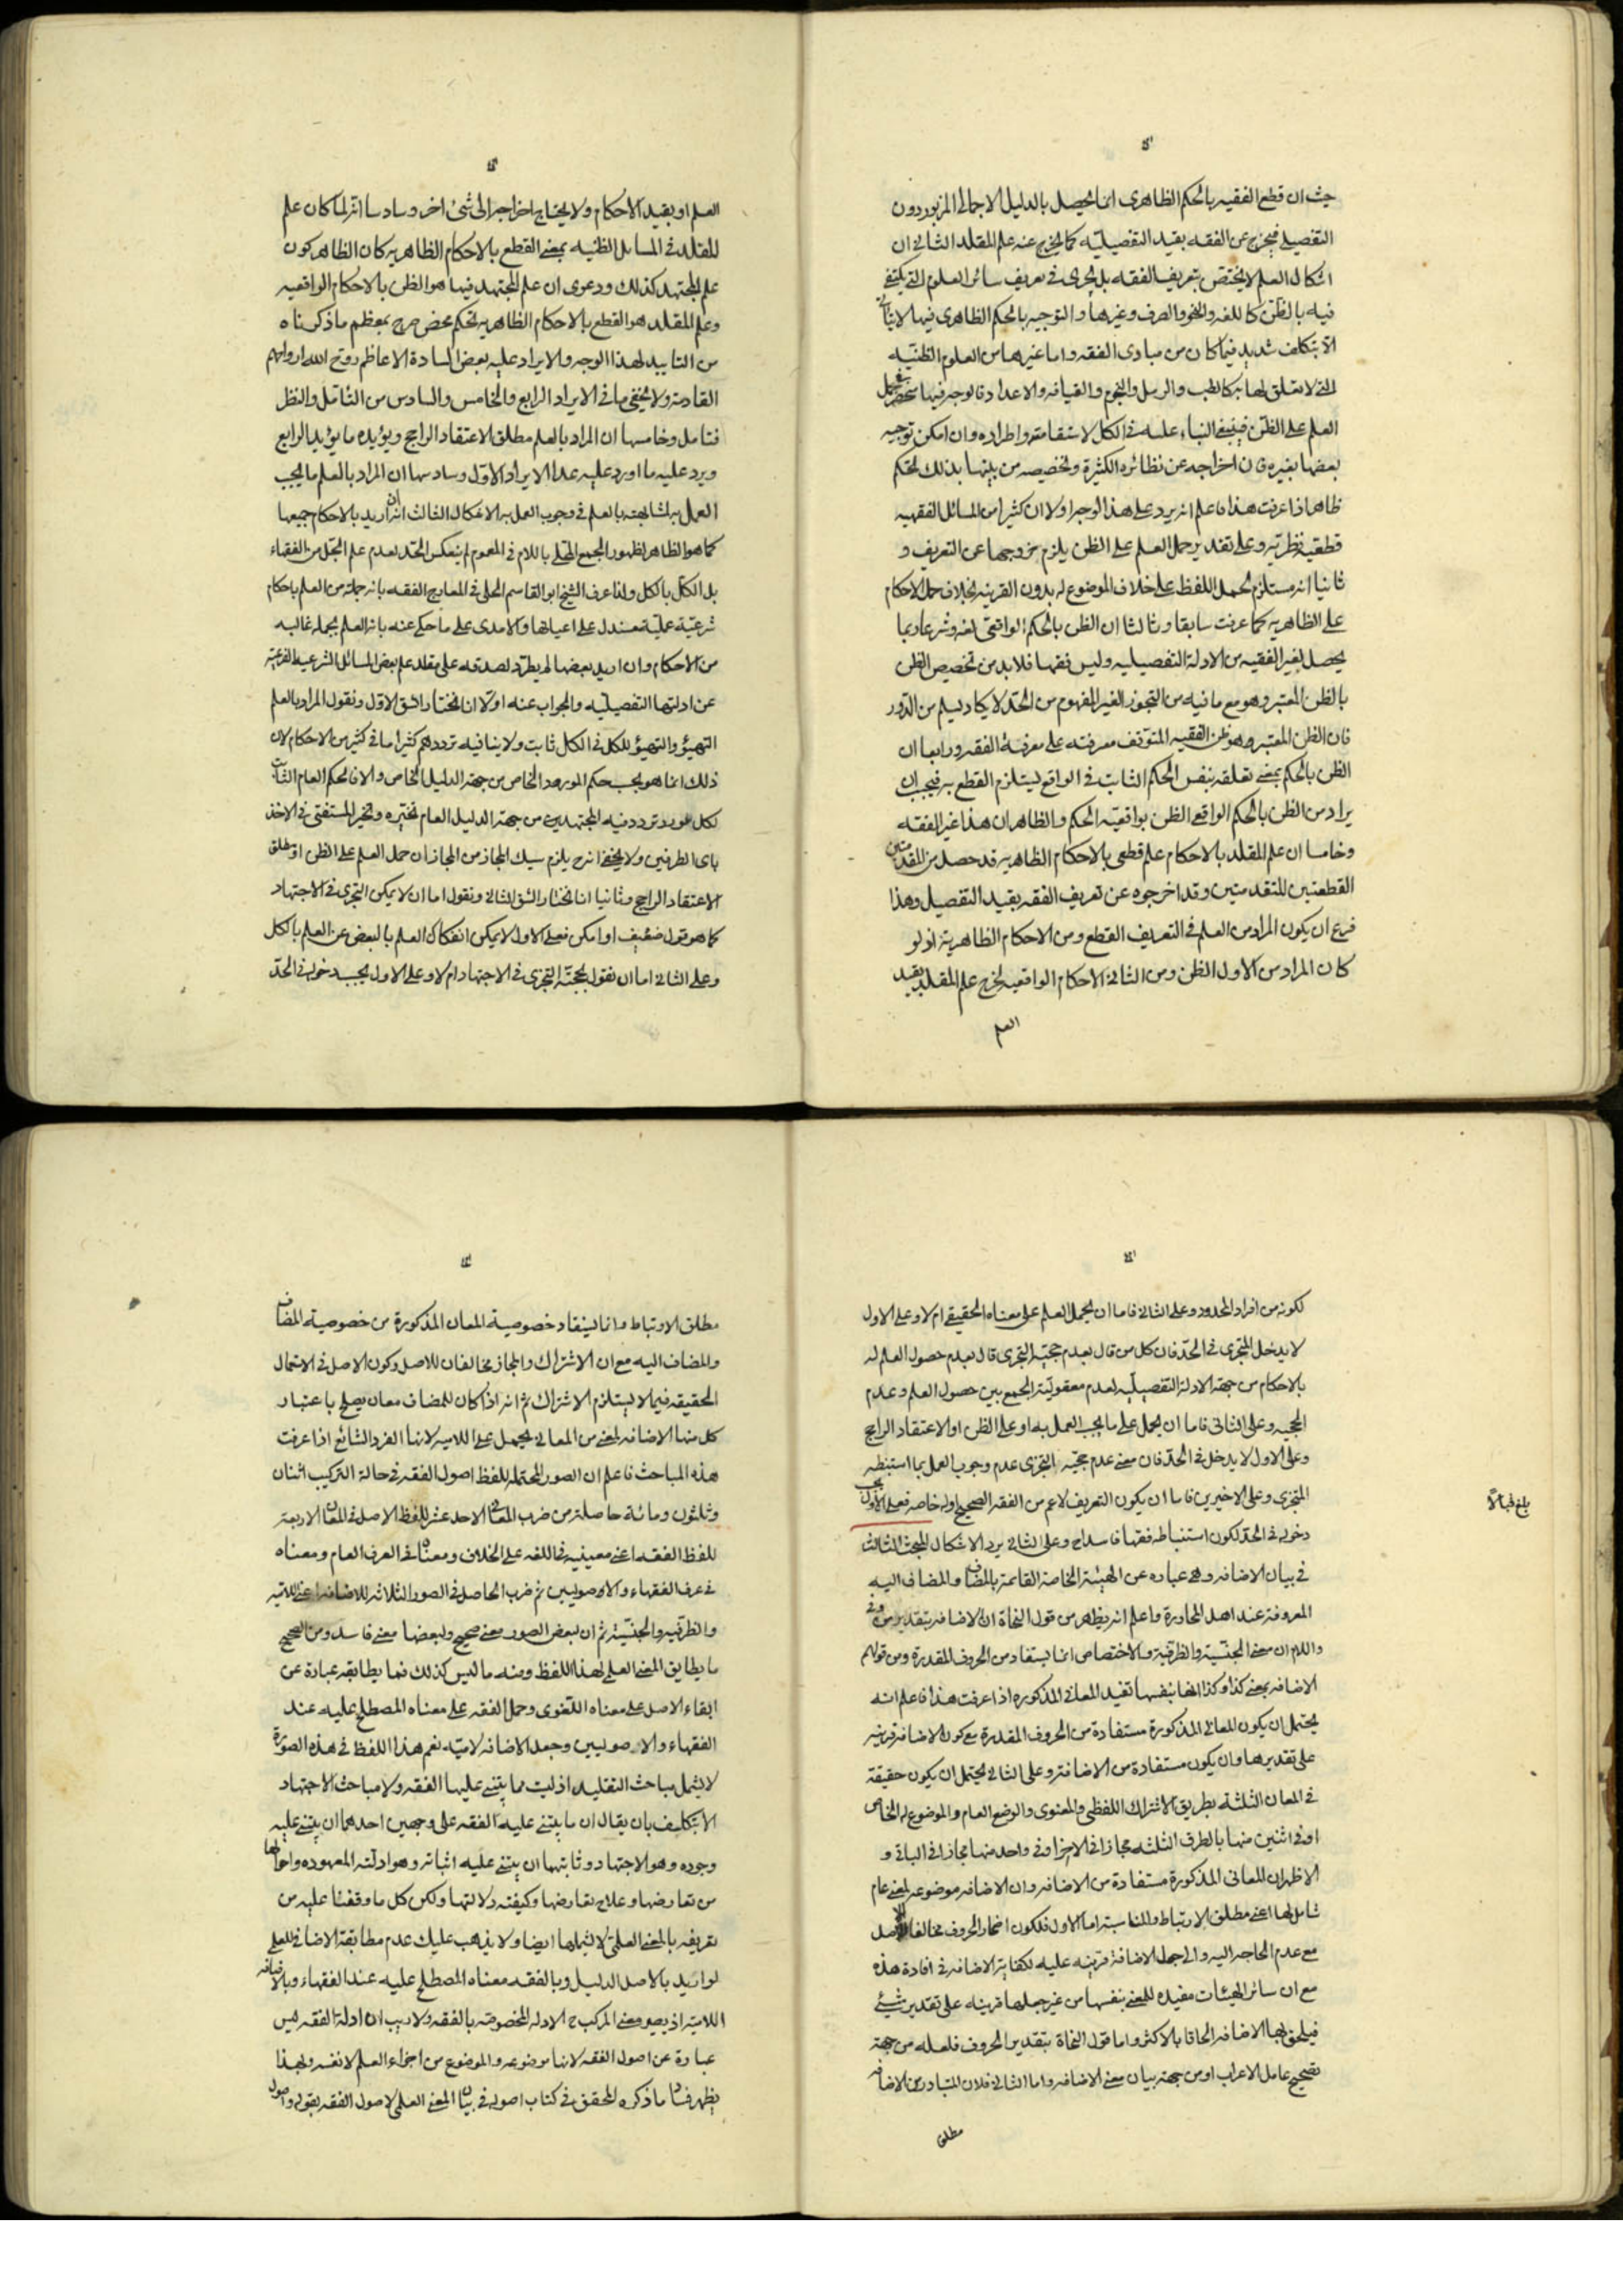 حيث ان قطع الفقيه بالحكم الظاهرى انما يحصل بالدليل الاجمالى المزبور دون
التفصيلى فيخرج عن الفقه بقيد التفصيلية كما يخرج عنه علم المقلد الثانى ان
اشكال العلم لا يختص بتعريف الفقه بل يجرى فى تعريف سائر العلوم التى يكتفى
فيه بالظن كاللغه والنحو والصرف وغيرها والتوجيه بالحكم الظاهرى فيها لا يتاتى
الا بتكلف شديد فيما كان من مبادى الفقه واما غيرها من العلوم الظنيه
التى لا تعلق لها به كالطب والرمل والنجوم والقيافه والاعداد فالوجه فيها منحصر فى حمل
العلم على الظن فينبغى البناء عليه فى الكل لاستقامته واطراده وان امكن توجيه
بعضها بغيره فان اخراجه عن نظائره الكثيرة وتخصيصه من بينها بذلك تحكم
ظاهر اذا عرفت هذا فاعلم انه يرد على هذا الوجه اولا ان كثيرا من المسائل الفقهيه
قطعية نظرية وعلى تقدير حمل العلم على الظن يلزم خروجها عن التعريف و
ثانيا انه مستلزم لحمل اللفظ على خلاف الموضوع له بدون القرينه بخلاف حمل الاحكام
على الظاهريه كما عرفت سابقا وثالثا ان الظن بالحكم الواقعى لغة وشرعا ربما
يحصل لغير الفقيه من الادلة التفصيليه وليس فقها فلا بد من تخصيص الظن
بالظن المعتبر وهو مع ما فيه من التجوز الغير المفهوم من الحد لا يكاد يسلم من الدور
فان الظن المعتبر هو ظن الفقيه المتوقف معرفته على معرفة الفقه ورابعا ان
الظن بالحكم بمعنى تعلقه بنفس الحكم الثابت فى الواقع يستلزم القطع به فيجب ان
يراد من الظن بالحكم الواقعى الظن بواقعية الحكم والظاهر ان هذا غير الفقه
وخامسا ان علم المقلد بالاحكام علم قطعى بالاحكام الظاهريه قد حصل من المقدمتين
القطعتين للتقدمتين وقد اخرجوه عن تعريف الفقه بقيد التفصيل وهذا
فرع ان يكون المراد من العلم فى التعريف القطع ومن الاحكام الظاهرية اذ لو
كان المراد من الاول الظن ومن الثانى الاحكام الواقعيه لخرج علم المقلد بقيد
العلم
العلم او بقيد الاحكام ولا يحتاج اخراجه الى شئ اخر وسادسا انه لما كان علم
للمقلد فى المسائل الظنيه بمعنى القطع بالاحكام الظاهريه كان الظاهر كون
علم المجتهد كذلك ودعوى ان علم المجتهد فيها هو الظن بالاحكام الواقعيه
وعلم المقلد هو القطع بالاحكام الظاهريه تحكم محض صرح بمعظم ما ذكرناه
من التاييد لهذا الوجه والايراد عليه بعض السادة الاعاظم روح الله ارواحهم
القادسة ولا يخفى ما فى الايراد الرابع والخامس والسادس من التامل والنظر
فتامل وخامسها ان المراد بالعلم مطلق الاعتقاد الراجح ويؤيده ما يؤيد الرابع
ويرد عليه ما اورد عليه عدا الايراد الاول وسادسها ان المراد بالعلم ما يجب
العمل به لمشابهته بالعلم فى وجوب العمل به الاشكال الثالث انه ان اريد بالاحكام جميعها
كما هو الظاهر لظهور الجمع المحلى باللام فى العموم لم ينعكس الحد لعدم علم الجل من الفقهاء
بل الكل بالكل ولذا عرف الشيخ ابو القاسم الحلى فى المعارج الفقه بانه جملة من العلم باحكام
شرعية عملية مستدل على اعيانها والامدى على ما حكى عنه بانه العلم بجملة غالبه
من الاحكام وان اريد بعضها لم يطرد لصدقه على مقلد علم بعض المسائل الشرعيه الفرعيه
عن ادلتها التفصيليه والجواب عنه اولا انا نختار الشق الاول ونقول المراد بالعلم
التهيؤ والتهيؤ للكل فى الكل ثابت ولا ينافيه ترددهم كثيرا ما فى كثير من الاحكام لان
ذلك انما هو بحسب حكم المورد الخاص من جهة الدليل الخاص والا فالحكم العام الثابت
لكل مورد تردد فيه المجتهدين من جهة الدليل العام تخيره وتخير المستفتى فى الاخذ
باى الطرفين ولا يخفى انه ح يلزم سبك المجاز من المجاز ان حمل العلم على الظن او مطلق
الاعتقاد الراجح وثانيا انا نختار الشق الثانى ونقول اما ان لا يمكن التجزى فى الاجتهاد
كما هو قول ضعيف او امكن فعلى الاول لا يمكن انفكاك العلم بالبعض عن العلم بالكل
وعلى الثانى اما ان نقول بحجية التجزى فى الاجتهاد ام لا وعلى الاول يجب دخوله فى الحد
لكونه من افراد المحدود وعلى الثانى فاما ان يحمل العلم على معناه الحقيقى ام لا وعلى الاول
لا يدخل المتجزى فى الحد فان كل من قال بعدم حجية التجزى قال بعدم حصول العلم له
بالاحكام من جهة الادلة التفصيليه لعدم معقولية الجمع بين حصول العلم وعدم
الحجيه وعلى الثانى فاما ان يحمل على ما يجب العمل به او على الظن او الاعتقاد الراجح
وعلى الاول لا يدخل فى الحد فان معنى عدم حجية التجزى عدم وجوب العمل بما استنبطه
المتجزى وعلى الاخيرين فاما ان يكون التعريف لاعم من الفقه الصحيح اوله خاصه فعلى الاول يجب
بلغ قبالاً
دخوله فى الحد لكون استنباطه فقها فاسدا ح وعلى الثانى يرد الاشكال المبحث الثالث
فى بيان الاضافه وهى عباره عن الهيئة الخاصة القائمة بالمضاف والمضاف اليه
المعروفة عند اهل المحاورة واعلم انه يظهر من قول النحاة ان الاضافه بتقدير من وفى
واللام ان معنى الجنسية والظرفية والاختصاص انما يستفاد من الحروف المقدرة ومن قولهم
الاضافه بمعنى كذا وكذا انها بنفسها تفيد المعانى المذكوره اذا عرفت هذا فاعلم انه
يحتمل ان يكون المعانى المذكورة مستفادة من الحروف المقدرة مع كون الاضافه قرينه
على تقديرها وان يكون مستفادة من الاضافة وعلى الثانى يحتمل ان يكون حقيقة
فى المعانى الثلثة بطريق الاشتراك اللفظى والمعنوى والوضع العام والموضوع له الخاص
او فى اثنين منها بالطرق الثلثه مجازا فى الاخر او فى واحد منها مجازا فى الباقى و
الاظهر ان المعانى المذكورة مستفادة من الاضافه وان الاضافه موضوعه لمعنى عام
شامل لها اعنى مطلق الارتباط والمناسبة اما الاول فلكون اضمار الحروف مخالفا للاصل
مع عدم الحاجه اليه والى جعل الاضافة قرينه عليه لكفاية الاضافه فى افادة هذه
مع ان سائر الهيئات مفيده للمعنى بنفسها من غير جعلها قرينه على تقدير شيئ
فيلحق بها الاضافه الحاقا بالاكثر واما قول النحاة بتقدير الحروف فلعله من جهة
تصحيح عامل الاعراب او من جهة بيان معنى الاضافه واما الثانى فلان المتبادر من الاضافه
مطلق
مطلق الارتباط وانما يستفاد خصوصية المعان المذكورة من خصوصية المضاف
والمضاف اليه مع ان الاشتراك والمجاز مخالفان للاصل وكون الاصل فى الاستعمال
الحقيقه فيما لا يستلزم الاشتراك ثم انه اذا كان للمضاف معان يصلح باعتبار
كل منها الاضافه لمعنى من المعانى يحمل على اللاميه لانها الفرد الشائع اذا عرفت
هذه المباحث فاعلم ان الصور المحتمله للفظ اصول الفقه فى حالة التركيب اثنان
وثلثون ومائة حاصلة من ضرب المعانى الاحد عشر للفظ الاصل فى المعانى الاربعة
للفظ الفقه اعنى معينيه فى اللغه على الخلاف ومعناه فى العرف العام ومعناه
فى عرف الفقهاء والاصوليين ثم ضرب الحاصل فى الصور الثلاثه للاضافه اعنى اللاميه
والظرفيه والجنسية ثم ان لبعض الصور معنى صحيح ولبعضها معنى فاسد ومن الصحيح
ما يطابق المعنى العلمى لهذا اللفظ ومنه ما ليس كذلك فما يطابقه عبارة عن
ابقاء الاصل على معناه اللغوى وحمل الفقه على معناه المصطلح عليه عند
الفقهاء والاصوليين وجعل الاضافه لاميه نعم هذا اللفظ فى هذه الصورة
لا يشمل مباحث التقليد اذ ليست مما يبتنى عليها الفقه ولا مباحث الاجتهاد
الا بتكلف بان يقال ان ما يبتنى عليه الفقه على وجهين احدهما ان يبتنى عليه
وجوده وهو الاجتهاد وثانيهما ان يبتنى عليه اثباته وهو ادلته المعهوده واحوالها
من تعارضها وعلاج تعارضها وكيفية دلالتها ولكن كل ما وقفنا عليه من
تعريفه بالمعنى العلمى لا يشملها ايضا ولا يذهب عليك عدم مطابقة الاضافى للعلمى
لو اريد بالاصل الدليل وبالفقه معناه المصطلح عليه عند الفقهاء وبالاضافه
اللامية اذ يصير معنى المركب ح الادلة المخصوصة بالفقه ولا ريب ان ادلة الفقه ليس
عبارة عن اصول الفقه لانها موضوعه والموضوع من اجزاء العلم لا نفسه وبهذا
يظهر فساد ما ذكره المحقق فى كتاب اصوله فى بيان المعنى العلمى لاصول الفقه بقوله واصول